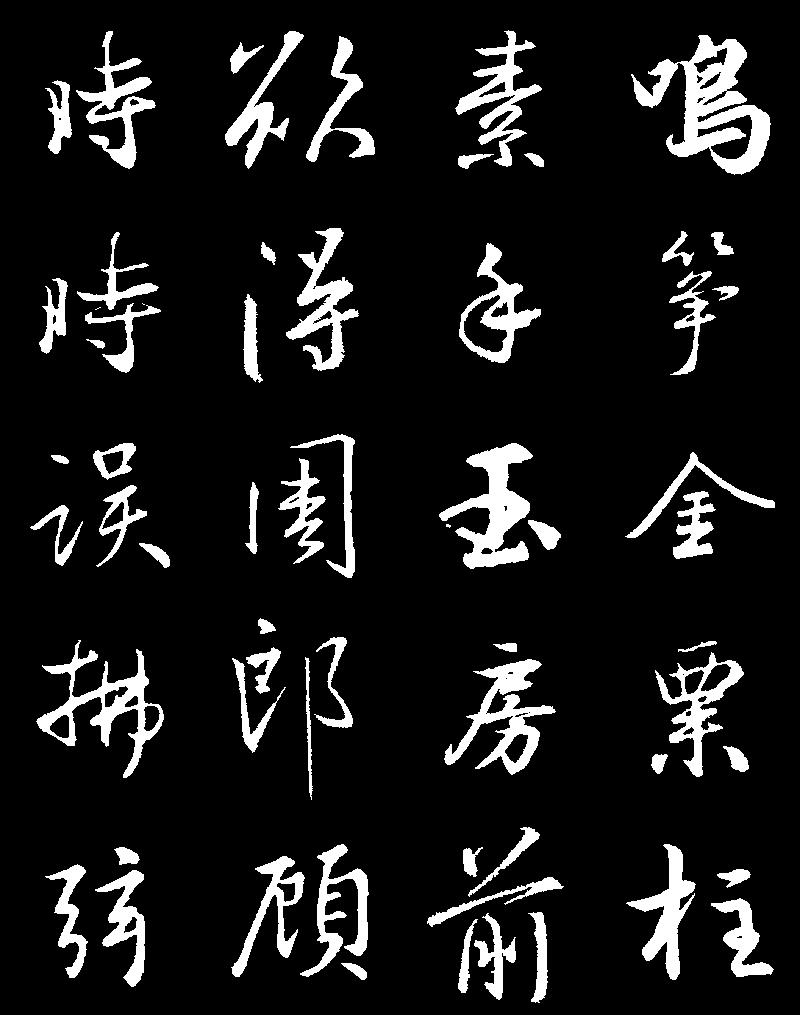 鳴筝金粟柱
素手玉房前
欲得周郎顧
時時誤拂弦